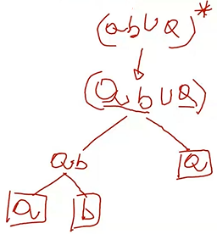 (ab∪a)*
(ab∪a)
ab a
a b